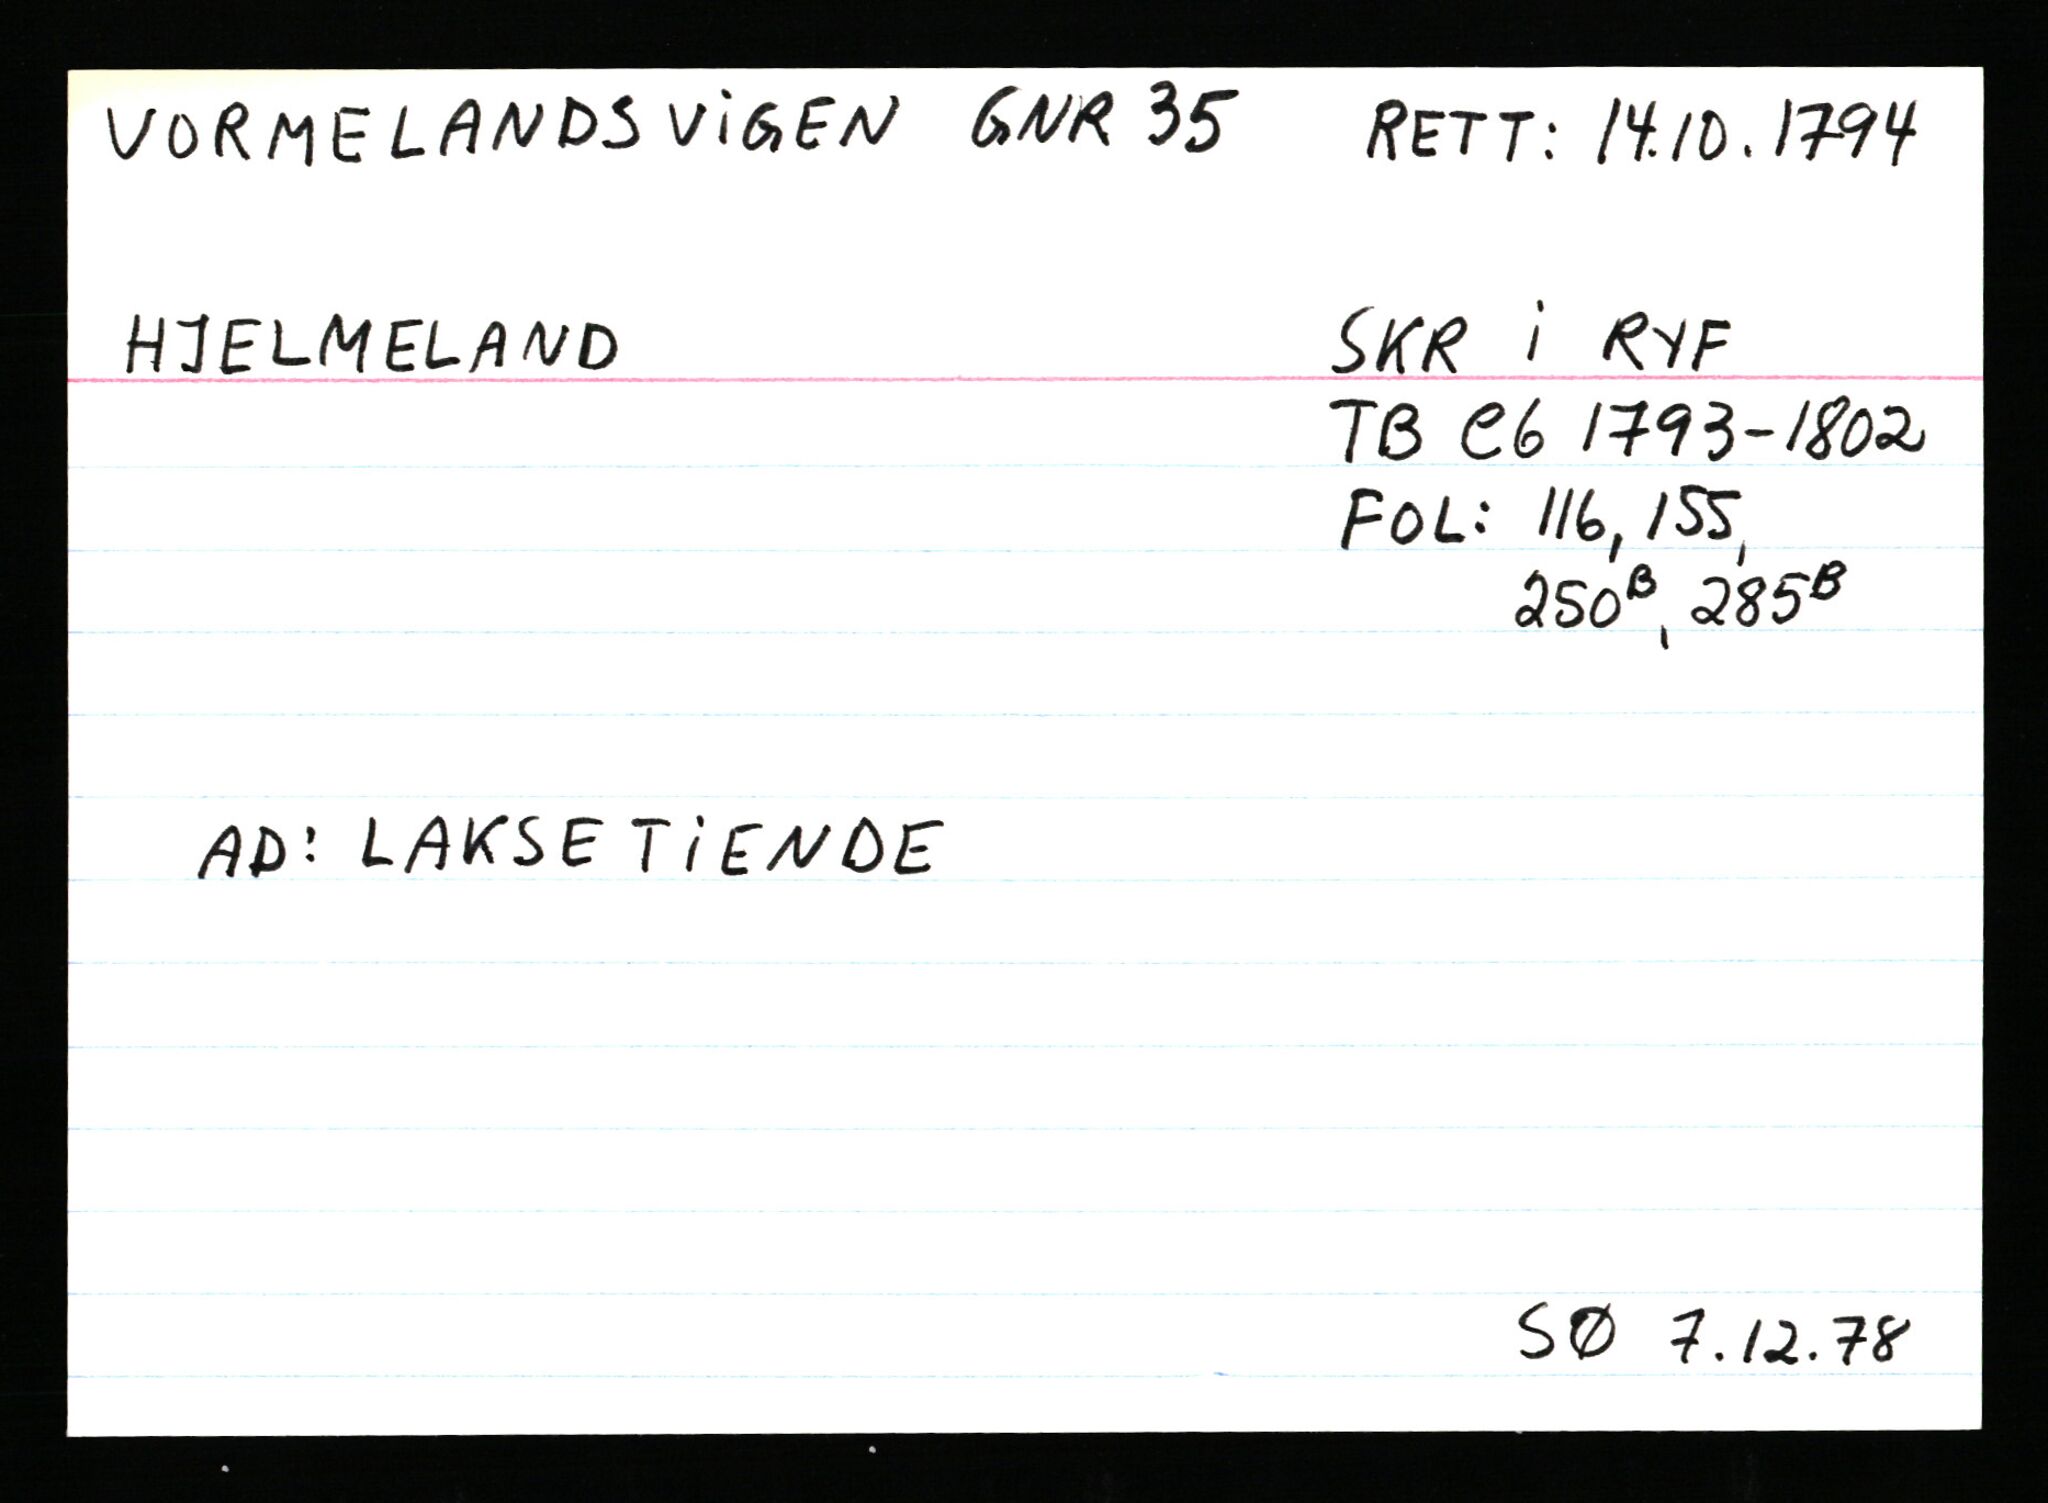 VORMELANDSVIGEN GNR 35 RETT: 14.10.1794
HJELMELAND SKR i RYF
TB C6 1793-1802
FOL: 116, 155,
250ᴮ, 285ᴮ
AD: LAKSETIENDE
SØ 7.12.78